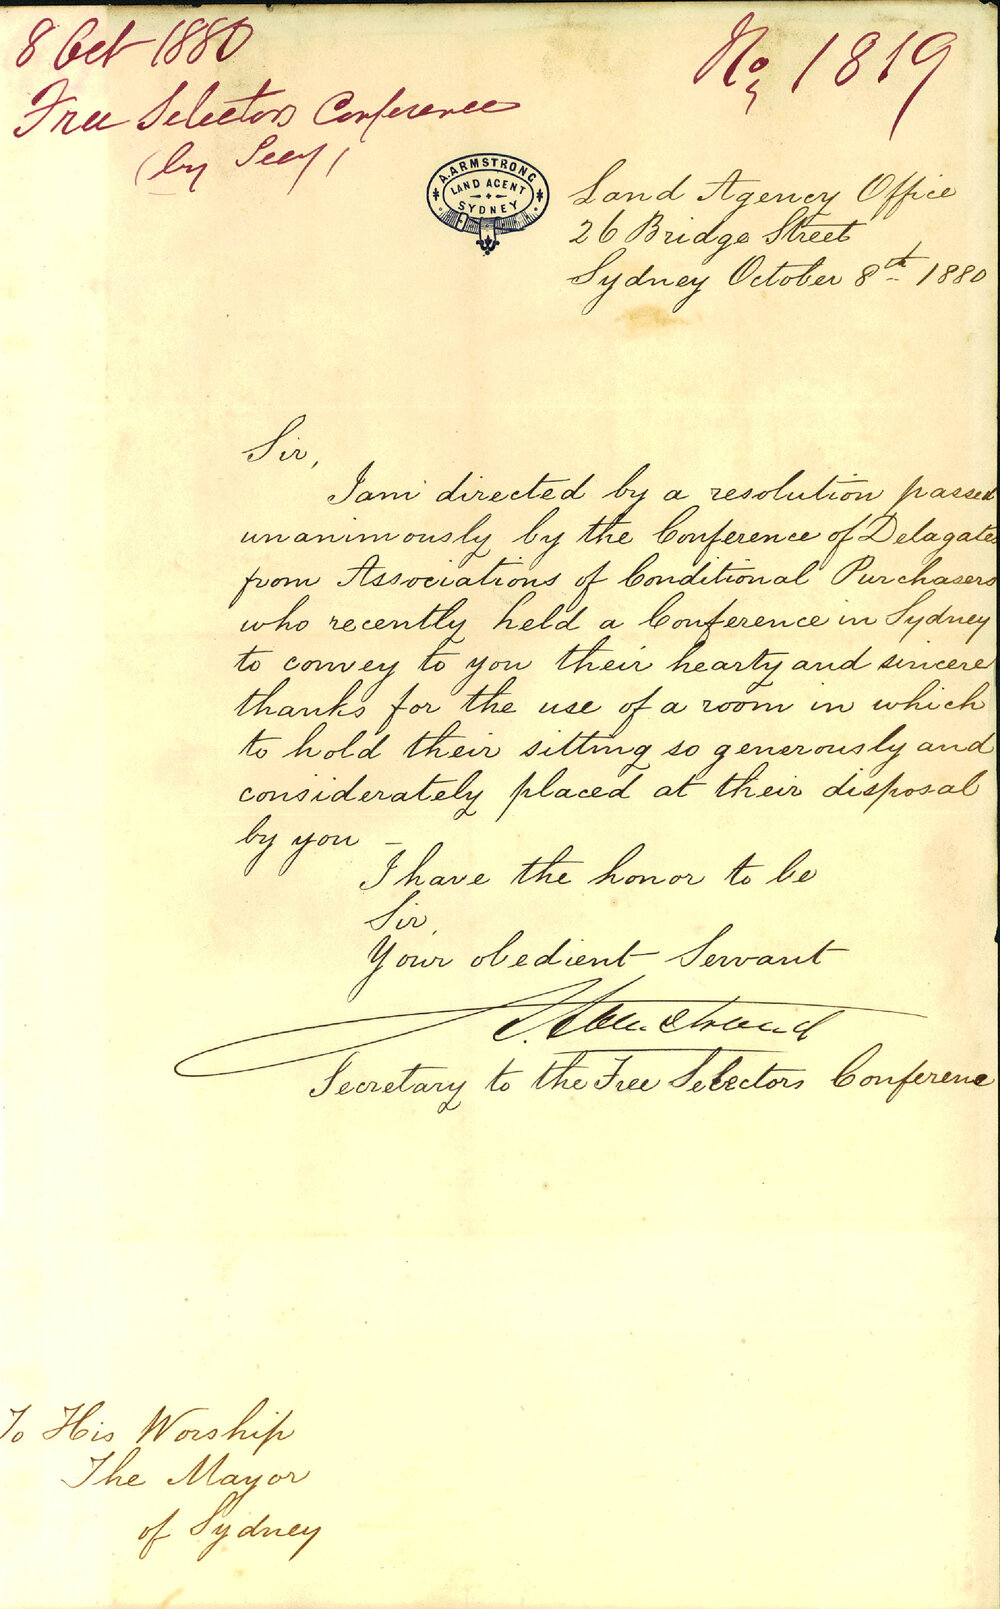 8 Oct 1880
No, 1819
Free Selectors Conference
(by Secy)
A. ARMSTRONG
LAND AGENT
SYDNEY
Land Agency Office
26 Bridge Street
Sydney October 8th 1880
Sir,
I am directed by a resolution passed
unanimously by the Conference of Delagates
from Associations of Conditional Purchasers
who recently held a Conference in Sydney
to convey to you their hearty and sincere
thanks for the use of a room in which
to hold their sitting so generously and
considerately placed at their disposal
by you –
I have the honor to be
Sir,
Your obedient Servant
Armstrong
Secretary to the Free Selectors Conference
To His Worship
The Mayor
of Sydney